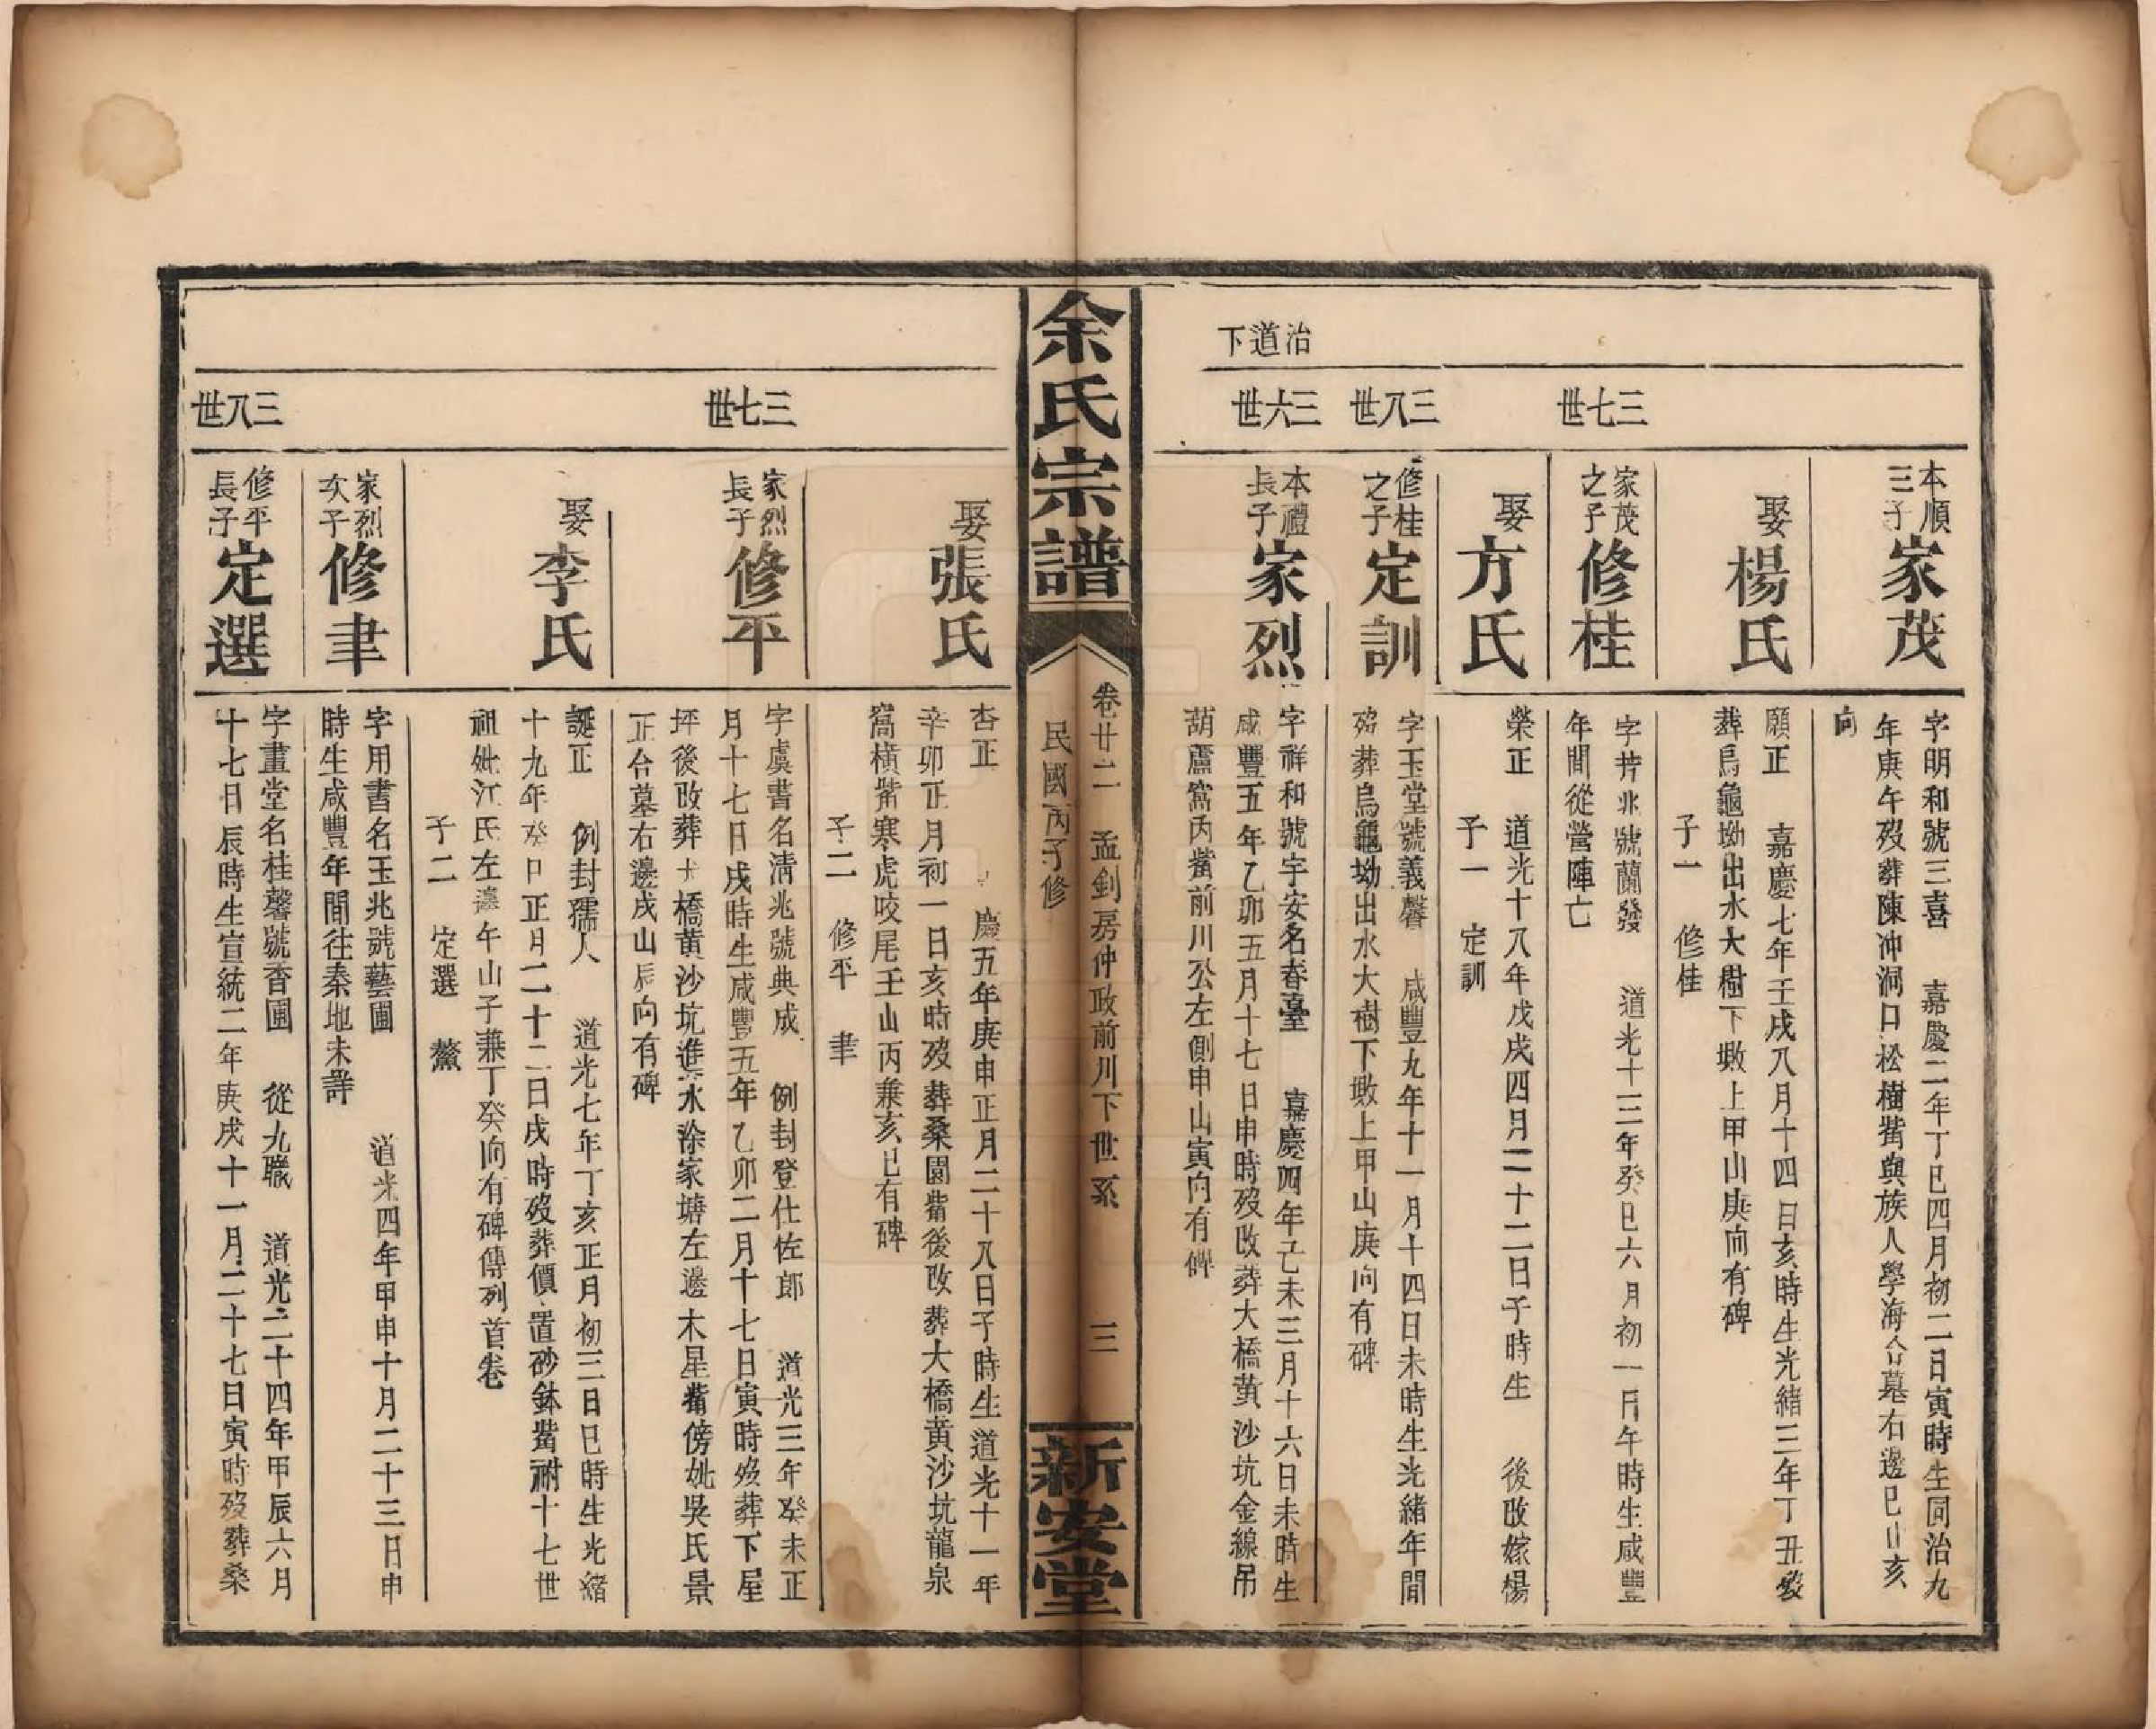 治道下
本順三子
家茂
字明和號三喜　嘉慶二年丁巳四月初二日寅時生同治九
年庚午歿葬陳冲洞口松樹嘴與族人學海合墓右邊巳山亥
向
娶
楊氏
願正　嘉慶七年壬戌八月十四日亥時生光緒三年丁丑歿
葬烏龜坳出水大樹下墩上甲山庚向有碑
子一　修桂
三七世
家茂之子
修桂
字芳兆號蘭發　道光十三年癸巳六月初一日午時生咸豐
年間從營陣亡
娶
方氏
榮正　道光十八年戊戌四月二十二日子時生　後改嫁楊
子一　定訓
三八世
修桂之子
定訓
字玉堂號義馨　咸豐九年十一月十四日未時生光緒年間
歿葬烏龜坳出水大樹下墩上甲山庚向有碑
三六世
本禮長子
家烈
字祥和號宇安名春臺　嘉慶四年己未三月十六日未時生
咸豐五年乙卯五月十七日申時歿改葬大橋黃沙坑金線吊
葫蘆窩丙嘴前川公左側申山寅向有碑
余氏宗譜
卷廿二　孟釗房仲政前川下世系　三
民國丙子修
新安堂
娶
張氏
杏正　慶五年庚申正月二十八日子時生道光十一年
辛卯正月初一日亥時歿葬桑園嘴後改葬大橋黃沙坑龍泉
窩橫嘴寒虎咬尾壬山丙兼亥巳有碑
子二　修平　聿
三七世
家烈長子
修平
字虞書名清兆號典成　例封登仕佐郎　道光三年癸未正
月十七日戌時生咸豐五年乙卯二月十七日寅時歿葬下屋
坪後改葬大橋黃沙坑進水涂家塘左邊木星嘴傍妣吳氏景
正合墓右邊戌山辰向有碑
娶
李氏
誕正　例封孺人　道光七年丁亥正月初三日巳時生光緒
十九年癸巳正月二十二日戌時歿葬價置砂鉢嘴祔十七世
祖妣江氏左邊午山子兼丁癸向有碑傳列首卷
子二　定選　鰲
家烈次子
修聿
字用書名玉兆號藝圃　道光四年甲申十月二十三日申
時生咸豐年間往秦地未詳
三八世
修平長子
定選
字畫堂名桂馨號香圃　從九職　道光二十四年甲辰六月
十七日辰時生宣統二年庚戌十一月二十七日寅時歿葬桑